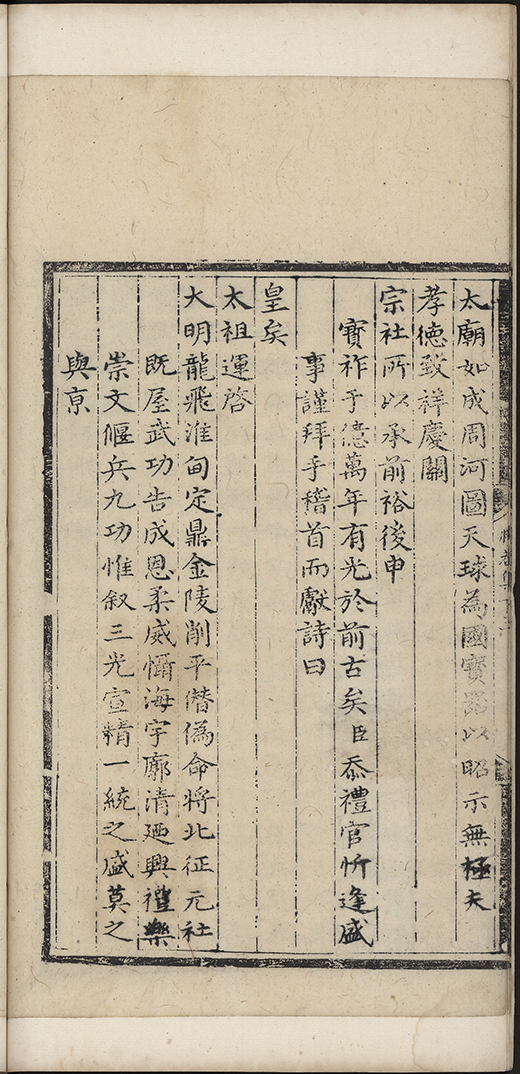 太廟如成周河圖天球為國寶器以昭示無極夫
孝德致祥慶關
宗社所以承前裕後申
寶祚于億萬年有光於前古矣臣忝禮官忻逢盛
事謹拜手稽首而獻詩曰
皇矣
太祖運啓
大明龍飛淮甸定鼎金陵削平僭偽命將北征元社
既屋武功告成恩柔威懾海宇廓清廼興禮樂
崇文偃兵九功惟叙三光宣精一統之盛莫之
與京